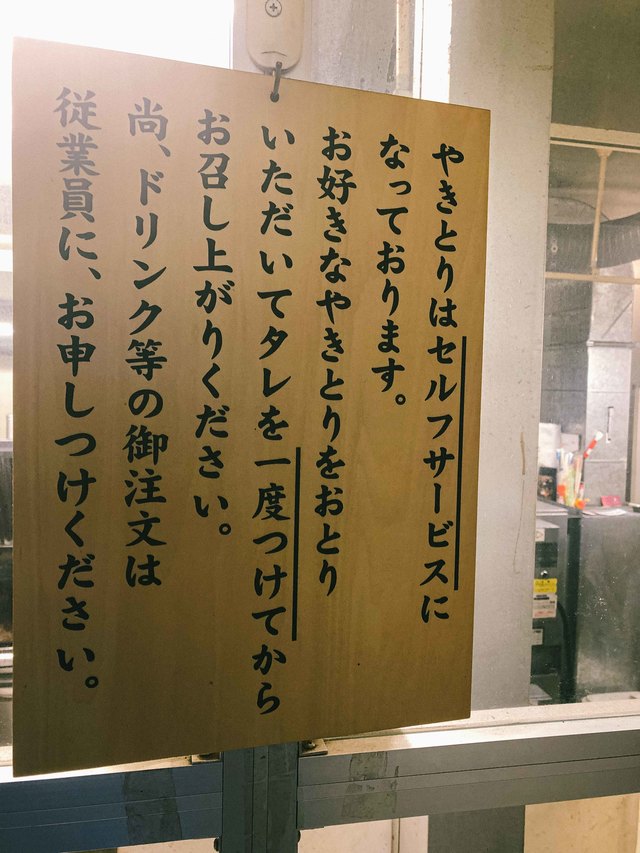 やきとりはセルフサービスに
なっております。
お好きなやきとりをおとり
いただいてタレを一度つけてから
お召し上がりください。
尚、ドリンク等の御注文は
従業員に、お申しつけください。